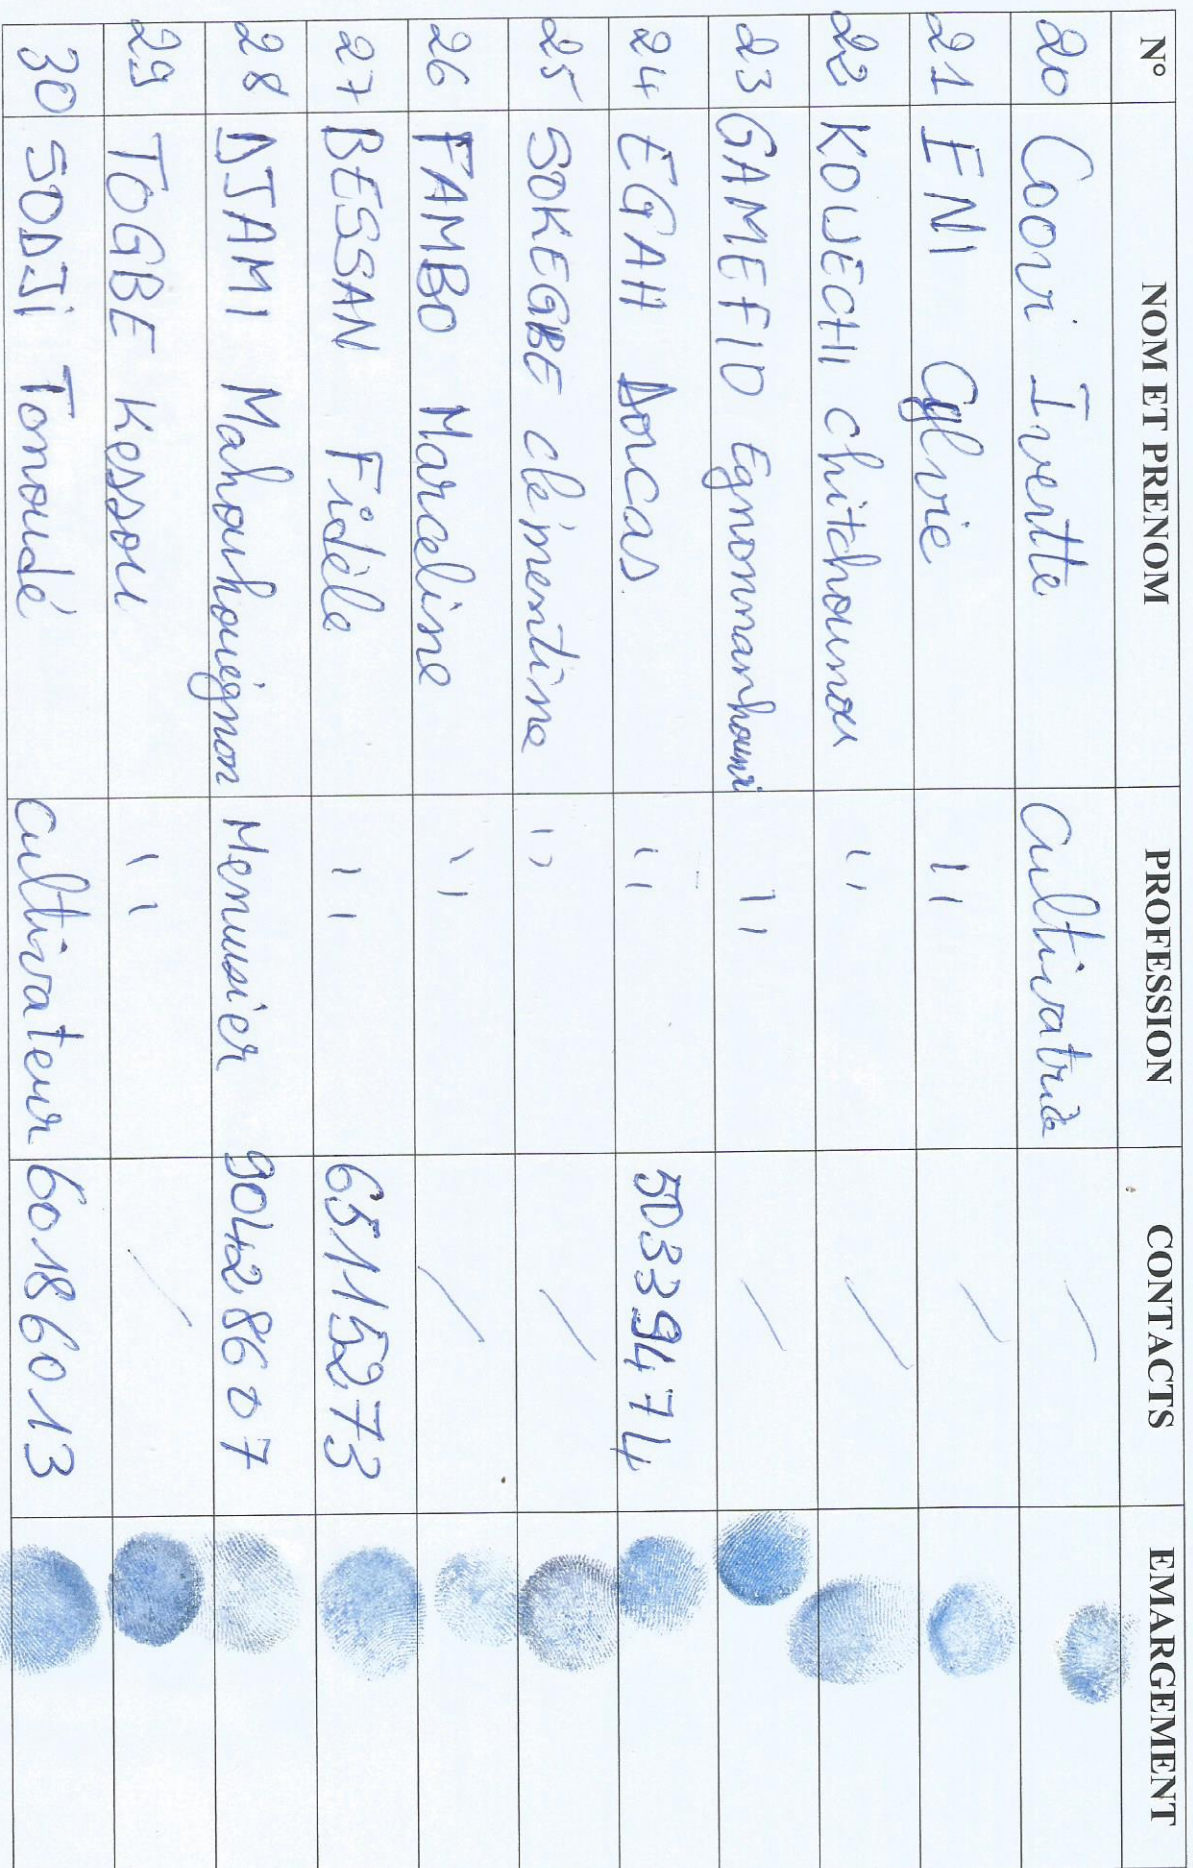 N° NOM ET PRENOM PROFESSION CONTACTS EMARGEMENT
20 Coovi Ivertte Cultivatrice /
21 ENI Cylvie " /
22 KOUECHI Chitchounou " /
23 GAMEFIO Egnonmanhoumi " /
24 EGAH Dorcas " 50339474
25 SOKEGBE clémentine " /
26 FAMBO Marceline " /
27 BESSAN Fidèle " 65115273
28 DJAMI Mahouhouégnon Menusier 90428607
29 TOGBE Kessou " /
30 SODJI Tonoudé Cultivateur 60186013